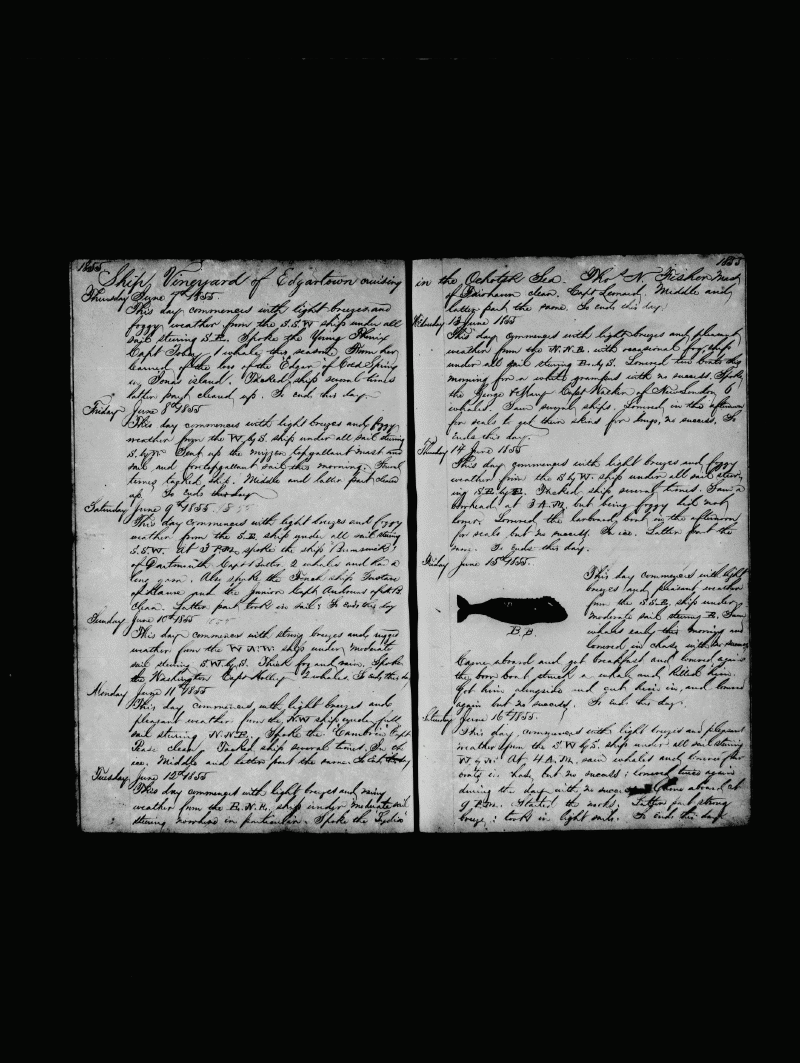 1855
Ship Vineyard of Edgartown cruising
Thursday June 7th 1855
This day commences with light breezes and
foggy weather from the S.S.W ship under all
sail steering S.E. Spoke the Young Phenix
Capt Tobey 1 whale this season From her
learned of the loss of the Edgar of Cold Spring
on Jonas island. Tacked ship several times
latter part cleared up. So ends this day
Friday June 8th 1855
This day commences with light breezes and foggy
weather from the W by S. ship under all sail steering
S. by W. Sent up the mizzen topgallant mast and
sail and foretopgallant sail this morning.
times tacked ship. Middle and latter part cleared
up. So ends this day
Saturday June 9th 1855
This day commences with light breezes and foggy
weather from the S.E. ship under all sail steering
S.S.W. At 3 P.M. spoke the ship Brunswick
of Dartmouth Capt Butler. 2 whales and had a
long yarn. Also spoke the French ship Gustave
of Havre and the Junior Capt Andrews of N.B.
Clean. Latter part took in sail. So ends this day
Sunday June 10th 1855
This day commences with strong breezes and rugged
weather from the W.N.W. ship under moderate
sail steering S.W. by S. Thick fog and rain. Spoke
the Washington Capt Holley 2 whales. So ends this day
Monday June 11th 1855
This day commences with light breezes and
pleasant weather from the N.W ship under full
sail steering N.N.E. Spoke the Cambria Capt
Pease clean. Tacked ship several times. In the
ice. Middle and latter part the same. So ends this day
Tuesday June 12th 1855
This day commences with light breezes and rainy
weather from the E.N.E. ship under moderate sail
steering nowhere in particular. Spoke the Lydia
1855
in the Ochotsk Sea. Thos N. Fisher Mast
of Fairhaven clean. Capt Leonard, Middle and
latter part the same. So ends this day.
Wednesday 13 June 1855
This day commences with light breezes and pleasant
weather from the N.N.E. with occasional fog, ship
under all sail steering E. by S. Lowered two boats this
morning for a white grampus with no success. Spoke
the George & Mary Capt Walker of New London 6
whales. Saw several ships. Lowered in the afternoon
for seals to get their skins for lungs, no success. So
Ends this day.
Thursday 14 June 1855
This day commences with light breezes and foggy
weather from the S by W. ship under all sail steer-
ing S.E. by E. Tacked ship several times. Saw a
bowhead at 3 A.M. but being foggy did not
lower. Lowered the larboard boat in the afternoon
for seals but no success. In ice. Latter part the
same. So Ends this day.
Friday June 15th 1855.
This day commences with light
breezes and pleasant weather
from the S.S.E, ship under
moderate sail steering E. Saw
whales early this morning and
lowered in chase with no success
B.B.
Came aboard and got breakfast and lowered again
the bow boat struck a whale and killed him.
Got him alongside and cut him in, and lowered
again but no success. So ends this day.
Saturday June 16th 1855.
This day commences with light breezes and pleasant
weather from the S.W by S. ship under all sail steering
W by N. At 4 A.M. saw whales and lowered the
boats in chase, but no success; lowered twice again
during the day with no success. Come aboard at
9 P.M. Latter part strong
breeze; took in light sails. So ends this day